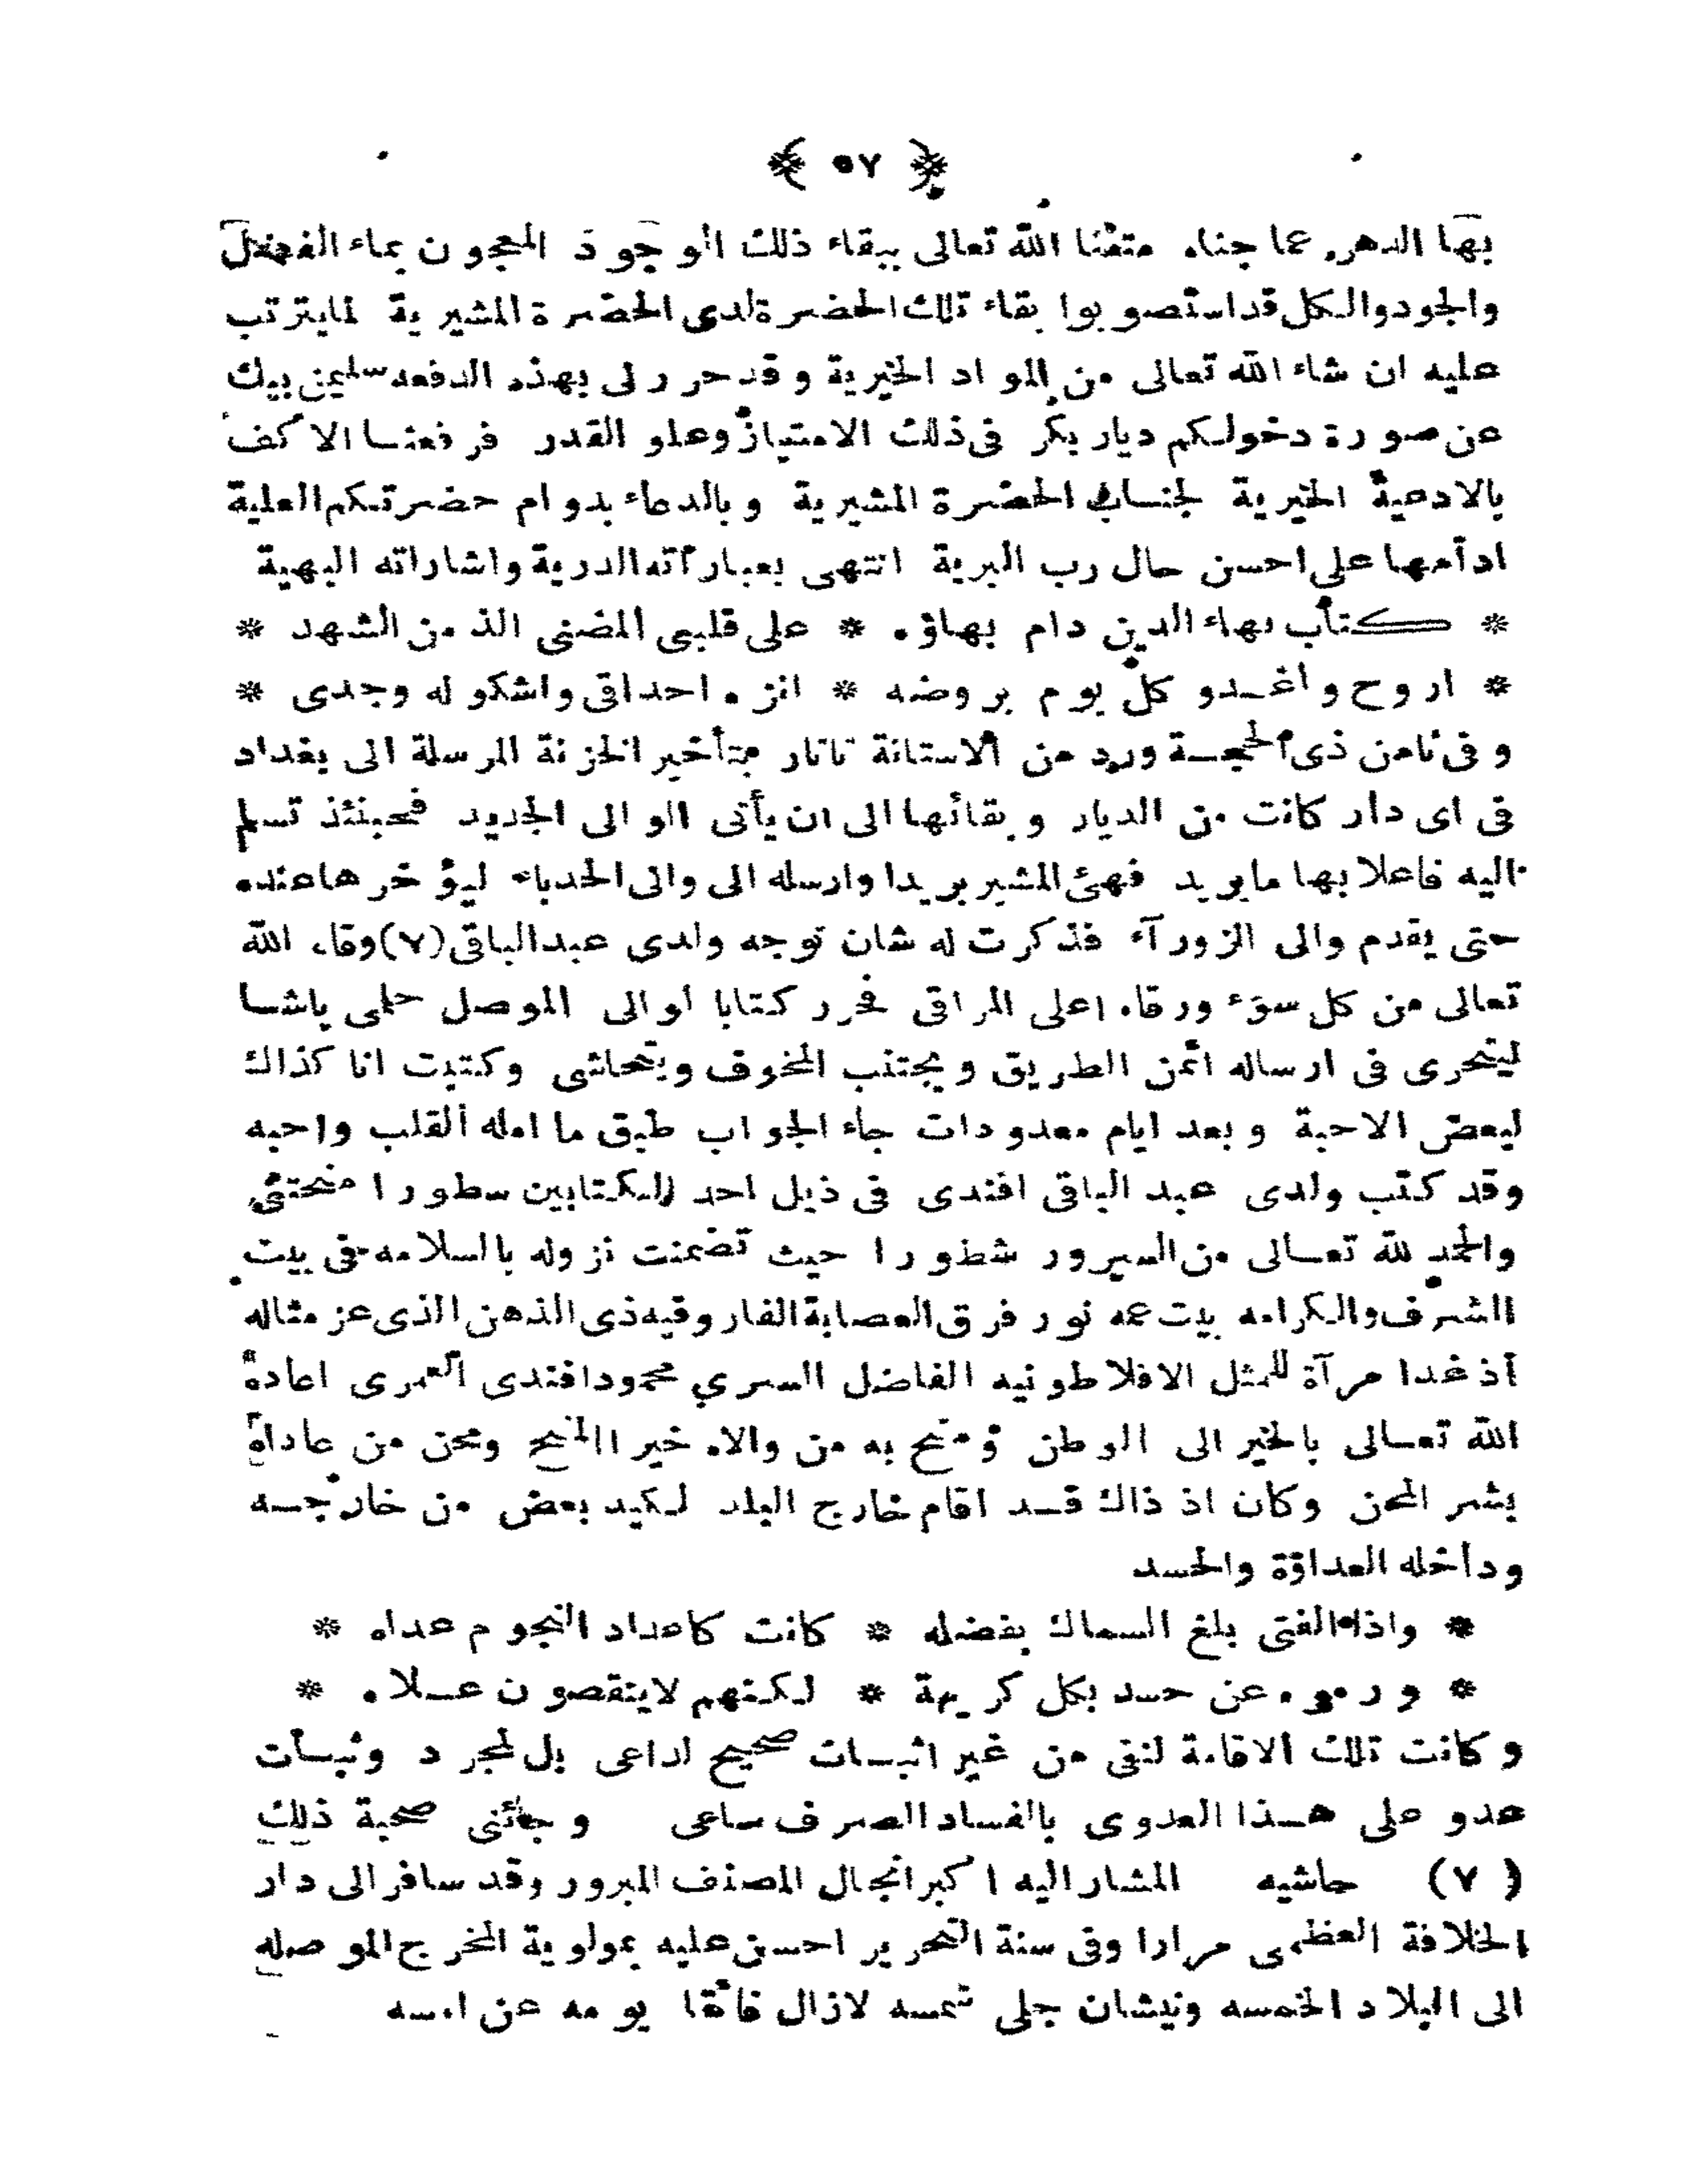 ﴿ ٥٧ ﴾
بها الدهر عما جناه متعنا الله تعالى ببقاء ذلك الوجود المعجون بماء الفضل
والجود والكل قد استصوبوا بقاء تلك الحضرة لدى الحضرة المشيرية لما يترتب
عليه ان شاء الله تعالى من المواد الخيرية وقد حرر لى بهذه الدفعه سليمن بيك
عن صورة دخولكم ديار بكر فى ذلك الامتياز وعلو القدر فرفعنا الاكف
بالادعية الخيرية لجناب الحضرة المشيرية وبالدعاء بدوام حضرتكم العلية
ادامها على احسن حال رب البرية انتهى بعباراته الدرية واشاراته البهية
* كتاب بهاء الدين دام بهاؤه * على قلبى المضنى الذ من الشهد *
* اروح واغدو كل يوم بروضه * انزه احداقى واشكو له وجدى *
وفى ثامن ذى الحجة ورد من الاستانة تاتار بتأخير الخزنة المرسلة الى بغداد
فى اى دار كانت من الديار وبقائها الى ان يأتى الوالى الجديد فحينئذ تسلم
اليه فاعلا بها ما يريد فهئ المشير بريدا وارسله الى والى الحدباء ليؤخرها عنده
حتى يقدم والى الزورآء فذكرت له شان توجه ولدى عبدالباقى (٧) وقاه الله
تعالى من كل سوء ورقاه اعلى المراقى فحرر كتابا لوالى الموصل حلمى پاشا
ليتحرى فى ارساله ائمن الطريق ويجتنب المخوف ويتحاشى وكتبت انا كذاك
لبعض الاحبة وبعد ايام معدودات جاء الجواب طبق ما امله القلب واحبه
وقد كتب ولدى عبد الباقى افندى فى ذيل احد الكتابين سطورا منحتنى
والحمد لله تعالى من السرور شطورا حيث تضمنت نزوله بالسلامه فى بيت
الشرف والكرامه بيت عمه نور فرق العصابة الفاروقيه ذى الذهن الذى عز مثاله
اذ غدا مرآة للمثل الافلاطونيه الفاضل السري محمود افندى العمرى اعاده
الله تعالى بالخير الى الوطن ومنح به من والاه خير المنح ومحن من عاداه
بشر المحن وكان اذ ذاك قد اقام خارج البلد لكيد بعض من خارجه
وداخله العداوة والحسد
* واذا الفتى بلغ السماك بفضله * كانت كاعداد النجوم عداه *
* ورموه عن حسد بكل كريهة * لكنهم لا ينقصون علاه *
وكانت تلك الاقامة لنفى من غير اثبات صحيح لداعى بل لمجرد وثبات
عدو على هذا العدوى بالفساد الصرف ساعى وجائنى صحبة ذلك
(٧) حاشيه المشار اليه اكبر انجال المصنف المبرور وقد سافر الى دار
الخلافة العظمى مرارا وفى سنة التحرير احسن عليه بمولوية المخرج الموصله
الى البلاد الخمسه ونيشان جلى شمسه لازال فائقا يومه عن امسه